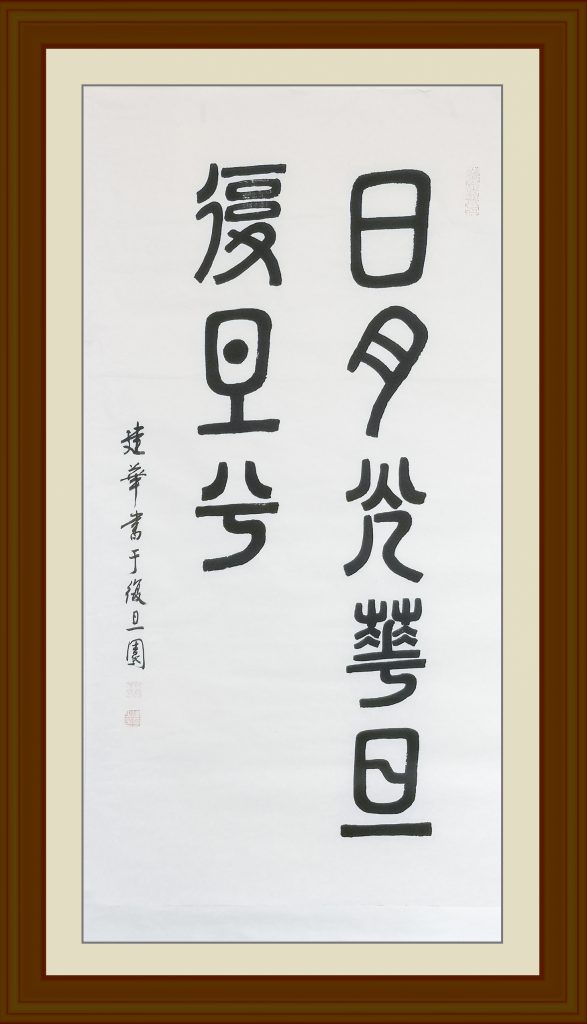 日月光華旦
復旦兮
建華書于復旦園